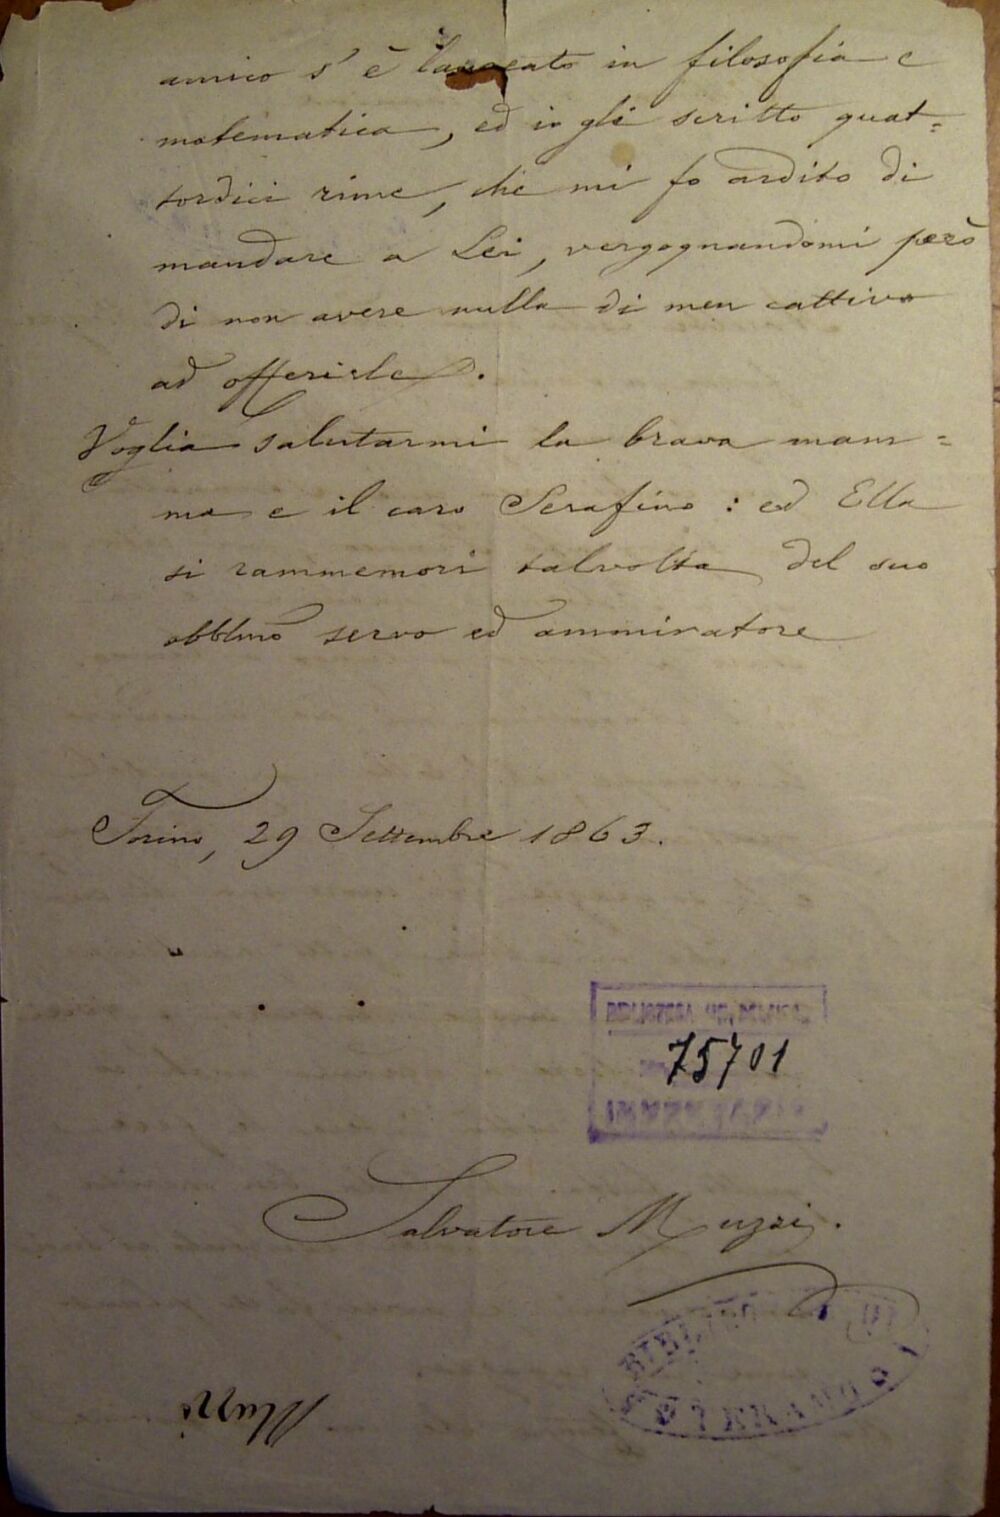 amico s'è laureato in filosofia e
matematica, ed io gli scritto quat=
tordici rime, che mi fo ardito di
mandare a Lei, vergognandomi però
di non avere nulla di men cattivo
ad offerirle.
Voglia salutarmi la brava mam=
ma e il caro Serafino: ed Ella
si rammemori talvolta del suo
obblmo servo ed ammiratore
Torino, 29 Settembre 1863.
BIBLIOTECA
75701
Salvatore Muzzi.
Muzzi